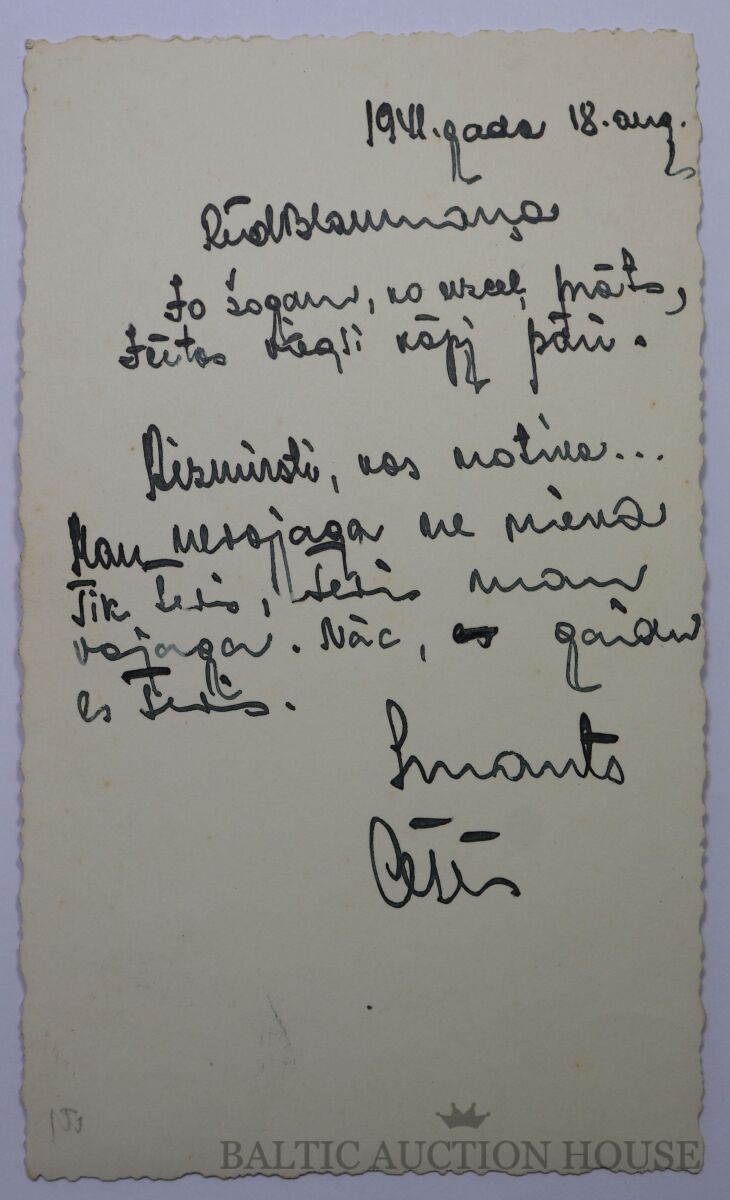 1941. gada 18. aug.
RūdBlaumaņa
to žogam, ko uzceļ prāts,
jūtas viegli kāpj pāri.
Aizmirsti, kas notika...
Man nevajaga ne viena
Tik Tevis, Tevis man
vajaga. Nāc, gaidu
es Tevis.
Imants
Cēsīs
BALTIC AUCTION HOUSE